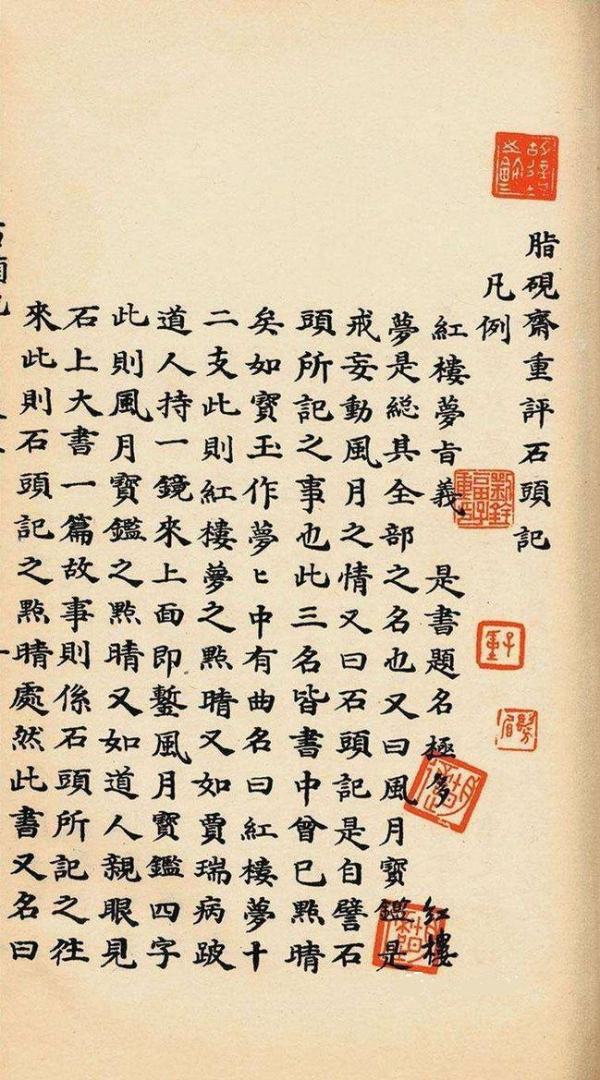 脂硯齋重評石頭記
凡例
紅樓夢旨義 是書題名極多 紅樓
夢是総其全部之名也又曰風月寳鑑是
戒妄動風月之情又曰石頭記是自譬石
頭所記之事也此三名皆書中曾已點晴
矣如寳玉作夢匕中有曲名曰紅樓夢十
二支此則紅樓夢之點晴又如賈瑞病跛
道人持一鏡來上面即鏨風月寳鑑四字
此則風月寳鑑之點晴又如道人親眼見
石上大書一篇故事則係石頭所記之徃
來此則石頭記之點晴處然此書又名曰
子重